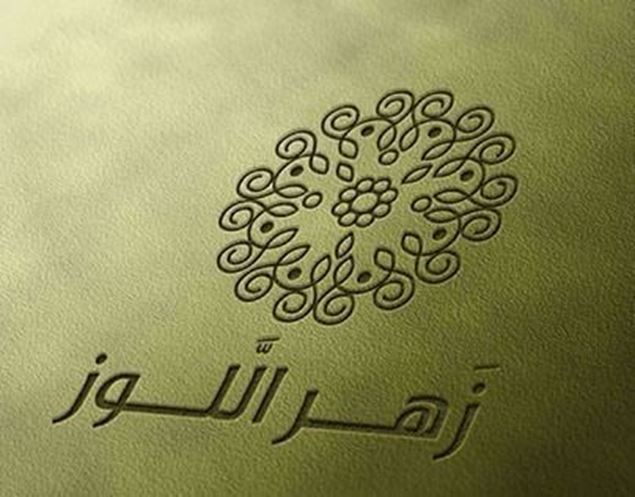 زَهـر الَّلـوز